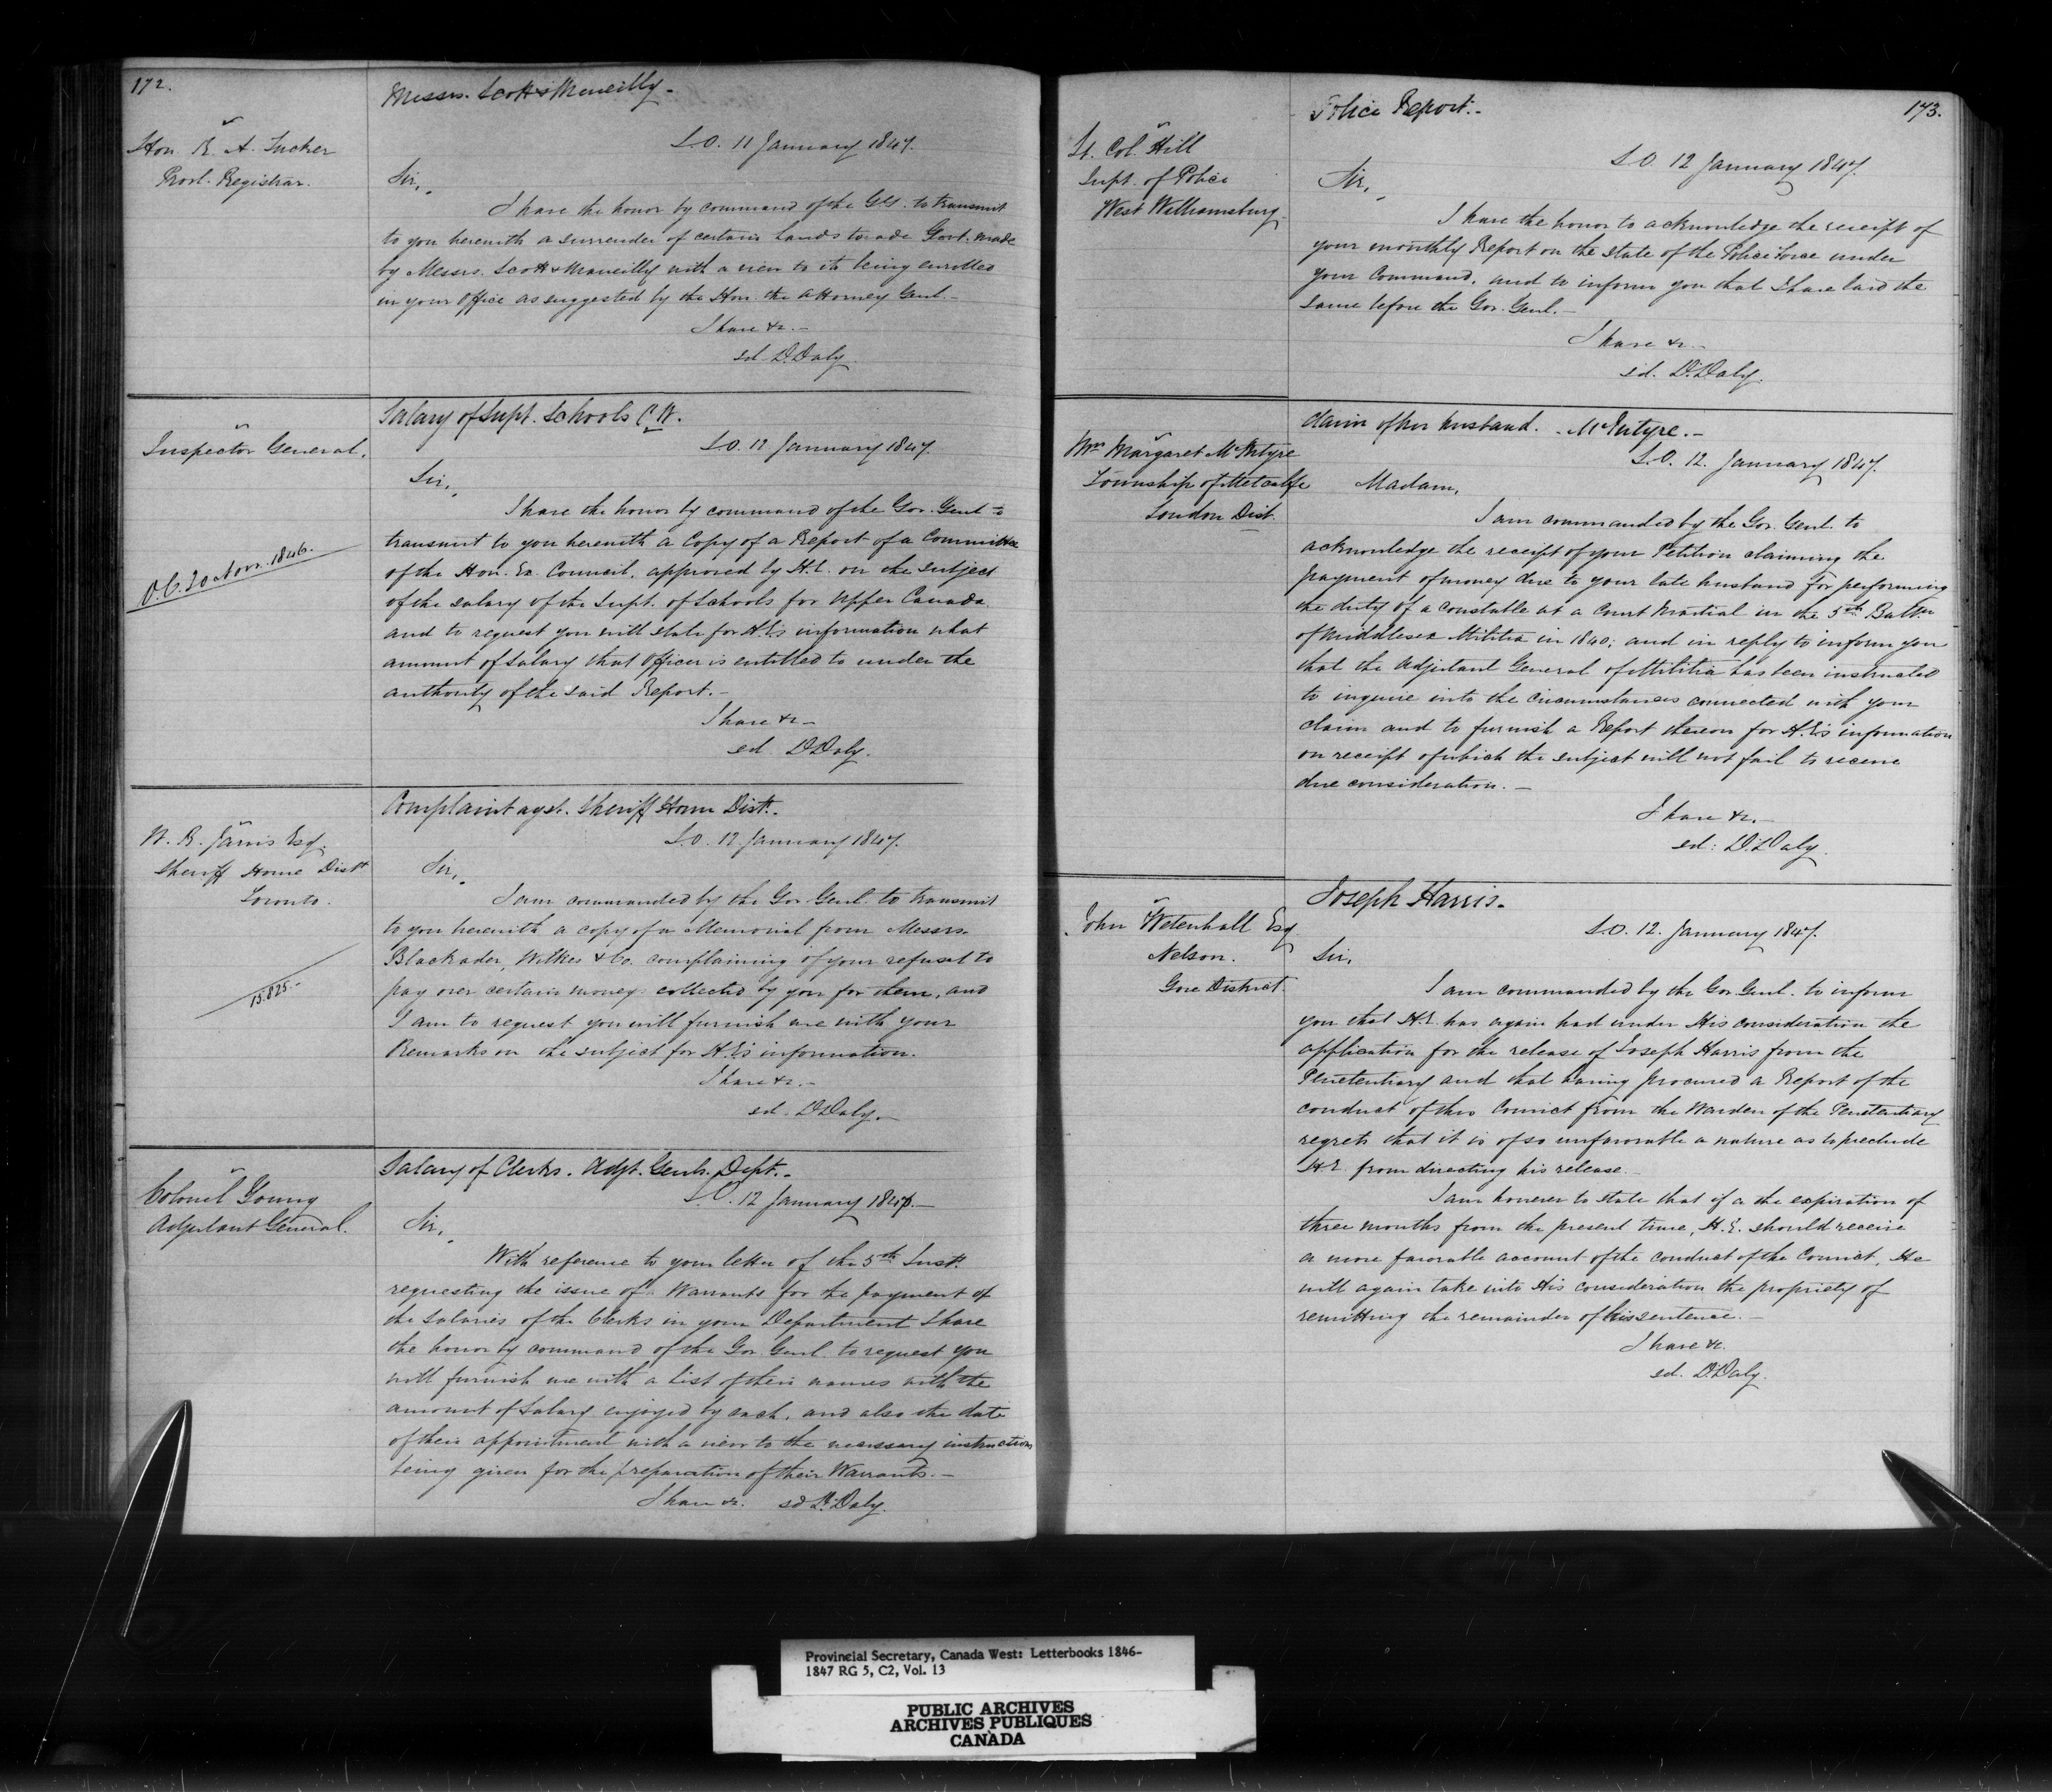 172.
Messrs. Scott & Mcneilly.
Hon. R. A. Tucker
Provl. Registrar.
S.O. 11 January 1847.
Sir,
I have the honor by command of the G.G. to transmit
to you herewith a surrender of certain Lands to Govt. made
by Messrs. Scott & Mcneilly with a view to its being enrolled
in your Office as suggested by the Hon. the Attorney Genl.
I have &c.
sd. D. Daly.
Salary of Supt. Schools C.W.
Inspector General.
S.O. 12 January 1847.
Sir,
O.C. 1846.
I have the honor by command of the Gov. Genl. to
transmit to you herewith a Copy of a Report of a Committee
of the Hon. Ex. Council, approved by H.E. on the subject
of the salary of the Supt. of Schools for Upper Canada
and to request you will state for H.E's information what
amount of Salary that Officer is entitled to under the
authority of the said Report.
I have &c
sd. D. Daly.
Complaint agst. Sheriff Home Dist.
W. B. Jarvis Esq.
Sheriff Home Distt
Toronto.
S.O. 12 January 1847.
Sir,
15.825.
I am commanded by the Gov. Genl. to transmit
to you herewith a copy of a Memorial from Messrs.
Blackader, Wilkes & Co. complaining of your refusal to
pay over certain moneys collected by you for them, and
I am to request you will furnish me with your
Remarks on the subject for H.E's information.
I have &c.
sd. D. Daly.
Salary of Clerks. Adjt. Genls. Dept.
Colonel Young
Adjutant General.
S.O. 12 January 1847.
Sir,
With reference to your letter of the 5th Inst.
requesting the issue of Warrants for the payment of
the Salaries of the Clerks in your Department I have
the honor by command of the Gov. Genl. to request you
will furnish me with a List of their names with the
amount of Salary enjoyed by each, and also the date
of their appointment with a view to the necessary instructions
being given for the preparation of their Warrants.
I have &c. sd D. Daly.
173.
Police Report.
Lt. Col. Hill
Supt. of Police
West Williamsburg.
S.O. 12 January 1847.
Sir,
I have the honor to acknowledge the receipt of
your monthly Report on the state of the Police Force under
your Command, and to inform you that I have laid the
same before the Gov. Genl.
I have &c.
sd. D. Daly.
Claim of her husband. McIntyre.
Mrs Margaret McIntyre
Township of Metcalfe
London Dist.
S.O. 12. January 1847.
Madam,
I am commanded by the Gov. Genl. to
acknowledge the receipt of your Petition claiming the
payment of money due to your late husband for performing
the duty of a Constable at a Court Martial in the 5th Battn
of Middlesex Militia in 1840; and in reply to inform you
that the Adjutant General of Militia has been instructed
to inquire into the circumstances connected with your
claim and to furnish a Report thereon for H.E's information
on receipt of which the subject will not fail to receive
due consideration.
I have &c.
sd: D. Daly.
Joseph Harris.
John Wetenhall Esq
Nelson.
Gore District.
S.O. 12. January 1847.
Sir,
I am commanded by the Gov. Genl. to inform
you that H.E. has again had under His consideration the
application for the release of Joseph Harris from the
Penetentiary and that having procured a Report of the
conduct of this Convict from the Warden of the Penetentiary
regrets that it is of so unfavorable a nature as to preclude
H.E. from directing his release.
I am however to state that if a the expiration of
three months from the present time, H.E. should receive
a more favorable account of the conduct of the Convict, He
will again take into His consideration the propriety of
remitting the remainder of his sentence.
I have &c.
sd. D. Daly.
Provincial Secretary, Canada West: Letterbooks 1846-
1847 RG 5, C2, Vol. 13
PUBLIC ARCHIVES
ARCHIVES PUBLIQUES
CANADA